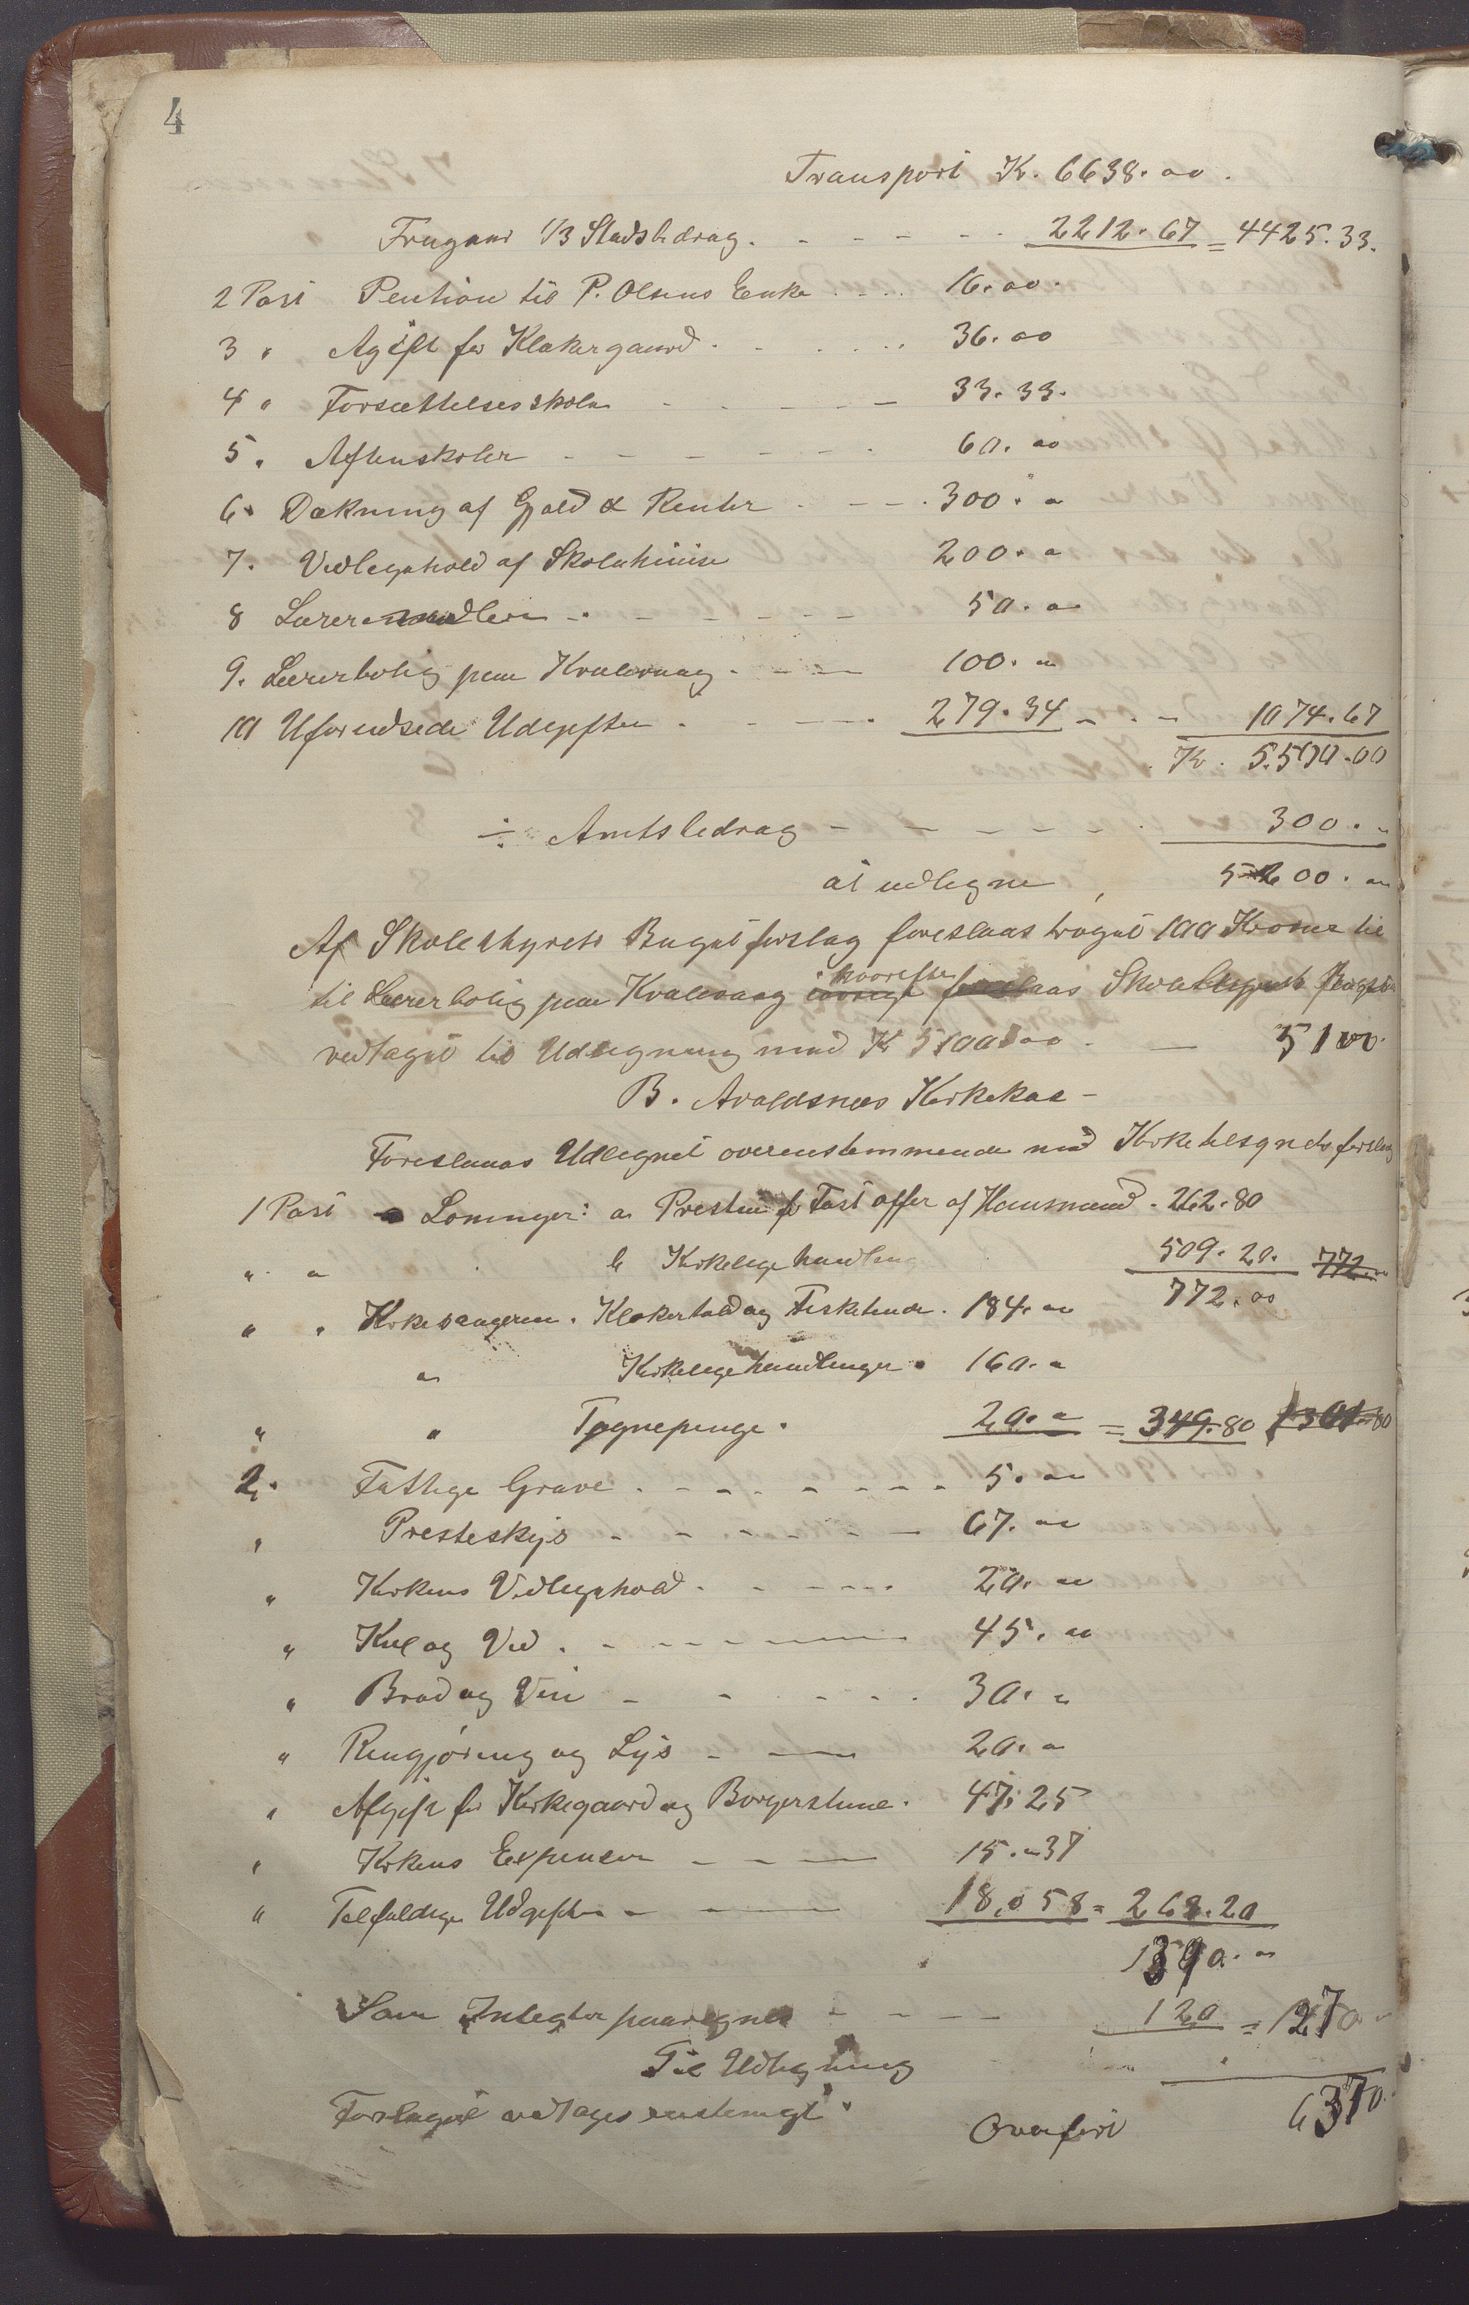 4
Transport K. 6638.00.
Fragaar 1/3 Stadsbidrag. 2212.67 = 4425.33.
2 Post Pention til P. Olsens Enke 16.00.
3 " Agift for Klokergaard 36.00
4 " Forsættelsesskoler 33.33.
5. Aftenskoler 60.00
6. Dækning af Gjæld & Renter 300."
7. Vedlegehold af Skolehuuse 200."
8 Lærermidler 50."
9. Lærerbolig paa Kvalavaag 100."
10 Uforudsede Udgifter 279.34 1074.67
Kr. 5.500.00
÷ Amtsbidrag 300."
at udligne 5200."
Af Skolestyrets Bugetforslag foreslaas fraget 100 Kroner til
til Lærerbolig paa Kvalavaag hvorefter Skolestyrets
vedtaget til Udligning med K 5100.00 5100
B. Avaldsnes Kirkekas-
Foreslaaes Udlignet overenstemmende med Kirketilsynets forslag
1 Post Lønninger: a Presten for Fast offer af Huusmænd. 262.80
" " b Kirkelige handling 509.20. 772.00
" " Kirkesangeren. Klokertold og Fisketiende. 184.00 772.00
" Kirkelige handlinger. 160."
" " Tegnepenge. 20." = 349.80
2. Fattige Grave 5.00
" Presteskyds 67.00
" Kirkens Vedlegehold 20.00
" Kul og Ved. 45.00
" Brød og Vin 30."
" Rengjøring og Lys 20."
" Afgift for Kirkegaard og Borgerstuue. 47.25
" Kirkens Expenser 15.37
" Tilfældige Udgifter 18.58 = 268.20
1390."
Som Indtegter paaregnes 120 = 1270
Til Udligning
Forslaget vedtages enstemigt. Overført 6370.